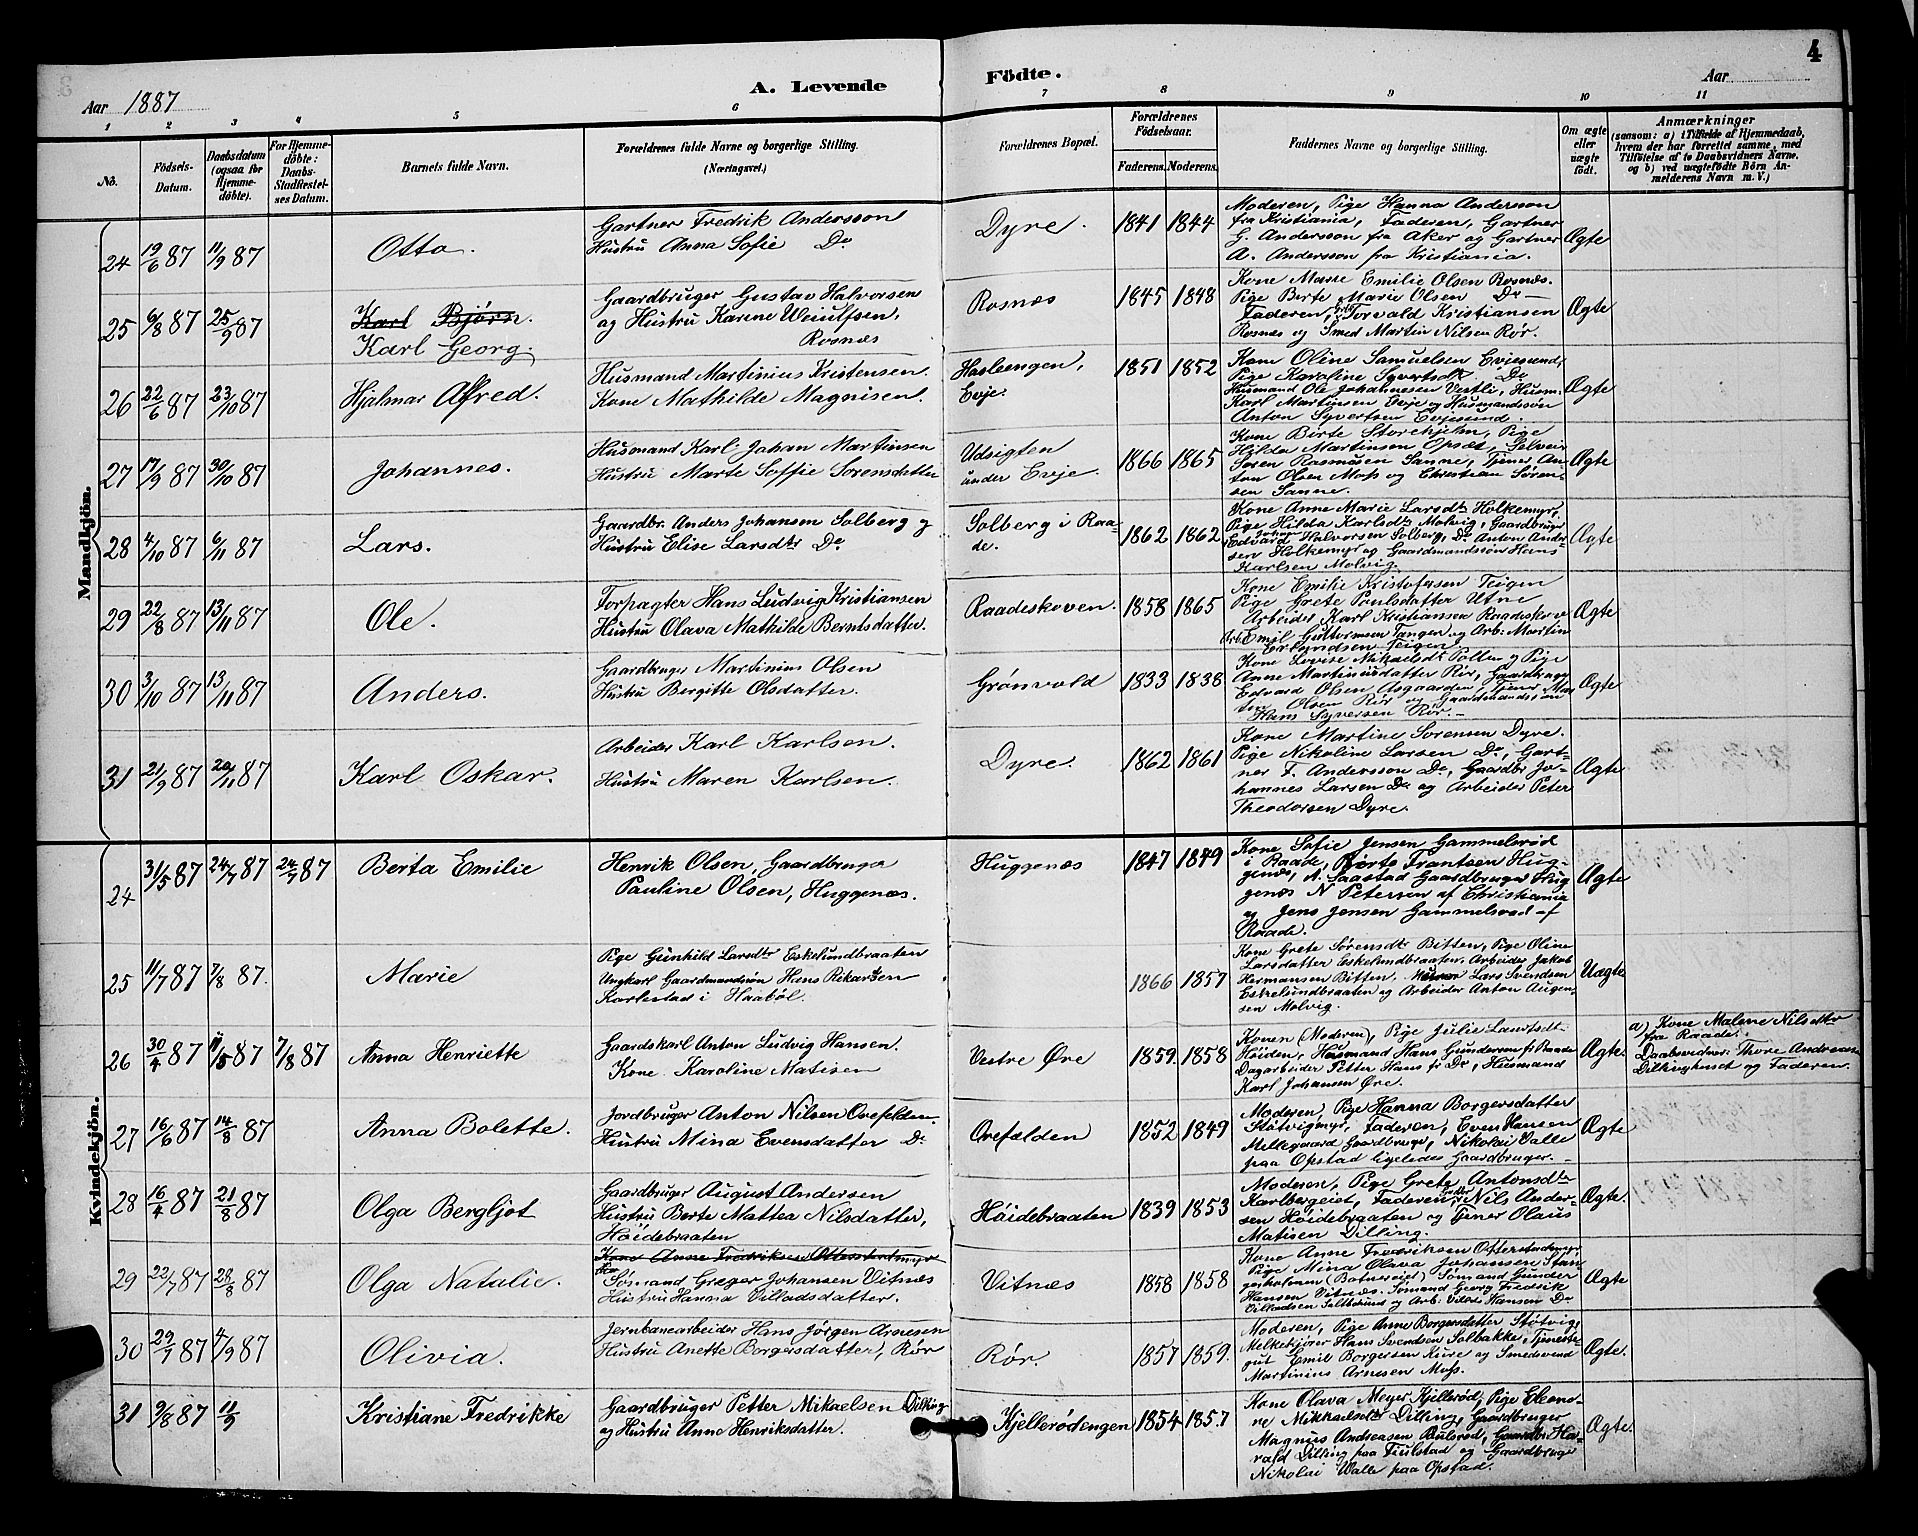 4
A. Levende Födte.
Aar 1887
Aar
1 2 3 4 5 6 7 8 9 10 11
No.
Födsels-Datum.
Daabsdatum (ogsaa for Hjemmedöbte).
For Hjemmedöbte: Daabs-Stadfæstelses Datum.
Barnets fulde Navn.
Forældrenes fulde Navne og borgerlige Stilling.
(Næringsvei.)
Forældrenes Bopæl.
Forældrenes Födselsaar.
Faderens. Moderens.
Faddernes Navne og borgerlige Stilling.
Om ægte eller uægte födt.
Anmærkninger
(saasom: a) i Tilfælde af Hjemmedaab, hvem der har forrettet samme, med Tilföielse af to Daabsvidners Navne, og b) ved uægtefödte Börn Anmelderens Navn m. V.)
Mandkjön.
24 19/6 87 11/9 87 Otto.
Gartner Fredrik Andersson
Hustru Anna Sofie Do
Dyre. 1841 1844
Moderen, Pige Hanna Anderson
fra Kristiania, Faderen, Gartner
G. Andersson fra Aker og Gartner
A. Andersson fra Kristiania.
Ægte
25 6/8 87 25/9 87 Karl Bjørn.
Karl Georg.
Gaardbruger Gustav Halvorsen
og Hustru Karine
Rosnæs
Rosnæs 1845 1848
Kone Marie Emilie Olsen Rosnæs.
Pige Berte Marie Olsen Do
Faderen, Torvald Kristiansen
Rosnæs og Smed Martin Nilsen Rør.
Ægte
26 22/6 87 23/10 87 Hjalmar Alfred.
Husmand Martinius Kristensen.
Kone Mathilde Magnisen.
Hasleengen,
Evje.
1851 1852
Kone Oline Samuelsen Evjesund,
Pige Karoline Syvertsdt Do
Husmand Ole Johannesen Vestli, Husm.
Karl Martinsen Evje og Husmandssøn
Anton Syvertsen Evjesund.
Ægte
27 17/9 87 30/10 87 Johannes.
Husmand Karl Johan Martinsen
Hustru Marte Soffie Sørensdatter
Udsigten
under Evje.
1866 1865
Kone Birte Storehjelm, Pige
Hilda Martinsen Opsæt, Selveier
Søren Rasmusen Sanne, Tjener An-
ton Olsen Moss og Christian Søren-
sen Sanne.
Ægte
28 4/10 87 6/11 87 Lars.
Gaardbr. Anders Johansen Solberg og
Hustru Elise Larsdtr Do
Solberg i Raa-
de.
1862 1862
Kone Anne Marie Larsdtr Holkemyr,
Pige Hilda Karlsdtr Molvig, Gaardbruger
Edvard Halvorsen Solberg, Do Anton Ander-
sen Holkemyr og Gaardmandssøn Hans
Karlsen Molvig.
Ægte
29 22/8 87 13/11 87 Ole.
Forpagter Hans Ludvig Kristiansen
Hustru Olava Mathilde Berntsdatter.
Raadeskoven. 1858 1865
Kone Emilie Kristofersen Teigen
Pige Grete Paulsdatter Utne
Arbeider Karl Kristiansen Raadeskov
Arb. Emil Guttormsen Tangen og Arb. Martin
Erlandsen Teigen
Ægte
30 3/10 87 13/11 87 Anders.
Gaardbruger Martinius Olsen
Hustru Bergitte Olsdatter.
Grønvold 1833 1838
Kone Lovise Mikaelsdtr Pollen og Pige
Anne Martinusdatter Rør, Gaardbruger
Edvard Olsen Aasgaarden, Tjener Mar
tin Olsen Rør og Gaardmandssøn
Hans Syversen Rør.
Ægte
31 21/9 87 20/11 87 Karl Oskar.
Arbeider Karl Karlsen.
Hustru Maren Karlsen.
Dyre. 1862 1861
Kone Martine Sørensen Dyre.
Pige Nikoline Larsen Do, Gart-
ner F. Andersson Do, Gaardbr. Jo-
hannes Larsen Do og Arbeider Peter
Theodorsen Dyre.
Ægte
Kvindekjön.
24 31/5 87 24/7 87 24/7 87 Berta Emilie
Henrik Olsen, Gaardbruger
Pauline Olsen, Huggenæs.
Huggenæs 1847 1849
Kone Sofie Jensen Gammelsrød
i Raade, Børte Frantsen Hug-
genæs, A. Saastad Gaardbruger Hug
genæs N Petersen af Christiania
og Jens Jensen Gammelsrød af
Raade.
Ægte
25 11/7 87 7/8 87. Marie
Pige Gunhild Larsdtr Eskelundbraaten
Ungkarl Gaardmandssøn Hans Rikartsen
Karlestad i Haabøl.
1866 1857
Kone Grete Sørensdtr Bitten, Pige Oline
Larsdatter Eskelundbraaten, Arbeider Jakob
Hermansen Bitten. Lars Svendsen
Eskelundbraaten og Arbeider Anton Augen-
sen Molvig.
Uægte
26 30/4 87 11/5 87 7/8 87 Anna Henriette
Gaardskarl Anton Ludvig Hansen.
Kone Karoline Matisen
Vestre Øre 1859. 1858
Konen (Moderen), Pige Julie Lauritsdt.
Høiden, Husmand Hans Gundersen fr Raade
Dagarbeider Petter Hans fr Do, Husmand
Karl Johansen Øre.
Ægte.
a) Kone Malene Nilsdtr
fra Raade.
Daabsvidner: Thore Andreasen
Dilkinghuset og Faderen.
27 16/6 87 14/8 87 Anna Bolette.
Jordbruger Anton Nilsen Orefelden
Hustru Mina Evensdatter Do
Orefælden 1852 1849
Moderen, Pige Hanna Borgersdatter
Støtvigmyr, Faderen, Even Hansen
Millegaard Gaardbruger, Nikolai Valle
paa Opstad ligeledes Gaardbruger.
Ægte
28 16/4 87 21/8 87 Olga Bergljot
Gaardbruger August Andersen
Hustru Berte Mattea Nilsdatter,
Höidebraaten
Höidebraaten 1839 1853
Moderen, Pige Grete Antonsdtr
Karlbergeiet, Faderen, Nils Ander-
sen Höidebraaten og Tjener Olaus
Matisen Dilling.
Ægte.
29 22/7 87 28/8 87 Olga Natalie.
Kone Anne Fredriksen Ottestadmyr
Sømand Græger Johansen Vitnæs
Hustru Hanna Villadsdatter.
Vitnæs 1858 1858
Kone Anne Fredriksen Ofterstadmyr
Pige Mina Olava Johansen Stan
geskolmen (Botnereiet) Sømand Gunder
Hansen Vitnæs. Sømand Georg Fredrik
Villadsen Saltbosund og Arb. Hansen Do
Ægte
30 29/7 87 4/9 87 Olivia.
Jernbanearbeider Hans Jørgen Arnesen
Hustru Anette Borgersdatter, Rør
Rør. 1857 1859.
Moderen, Pige Anne Borgersdatter Støtvig,
Melkekjører Hans Svendsen Solbakke, Tjeneste-
gut Emil Borgersen Kure og Smedsvend
Martinius Arnesen Moss.
Ægte.
31 9/8 87 11/9 Kristiane Fredrikke
Gaardbruger Petter Mikaelsen Dilling
og Hustru Anne Henriksdatter.
Kjellerødengen 1854 1857
Kone Olava Meyer Kjellerød, Pige Eleono-
re Mikkaelsdtr Dilling, Gaardbruger
Magnus Andreasen Paulsrød, Gaardbr. Ha-
rald Dilling paa Fiulstad og Gaardbruger
Nikolai Walle paa Opstad.
Ægte.